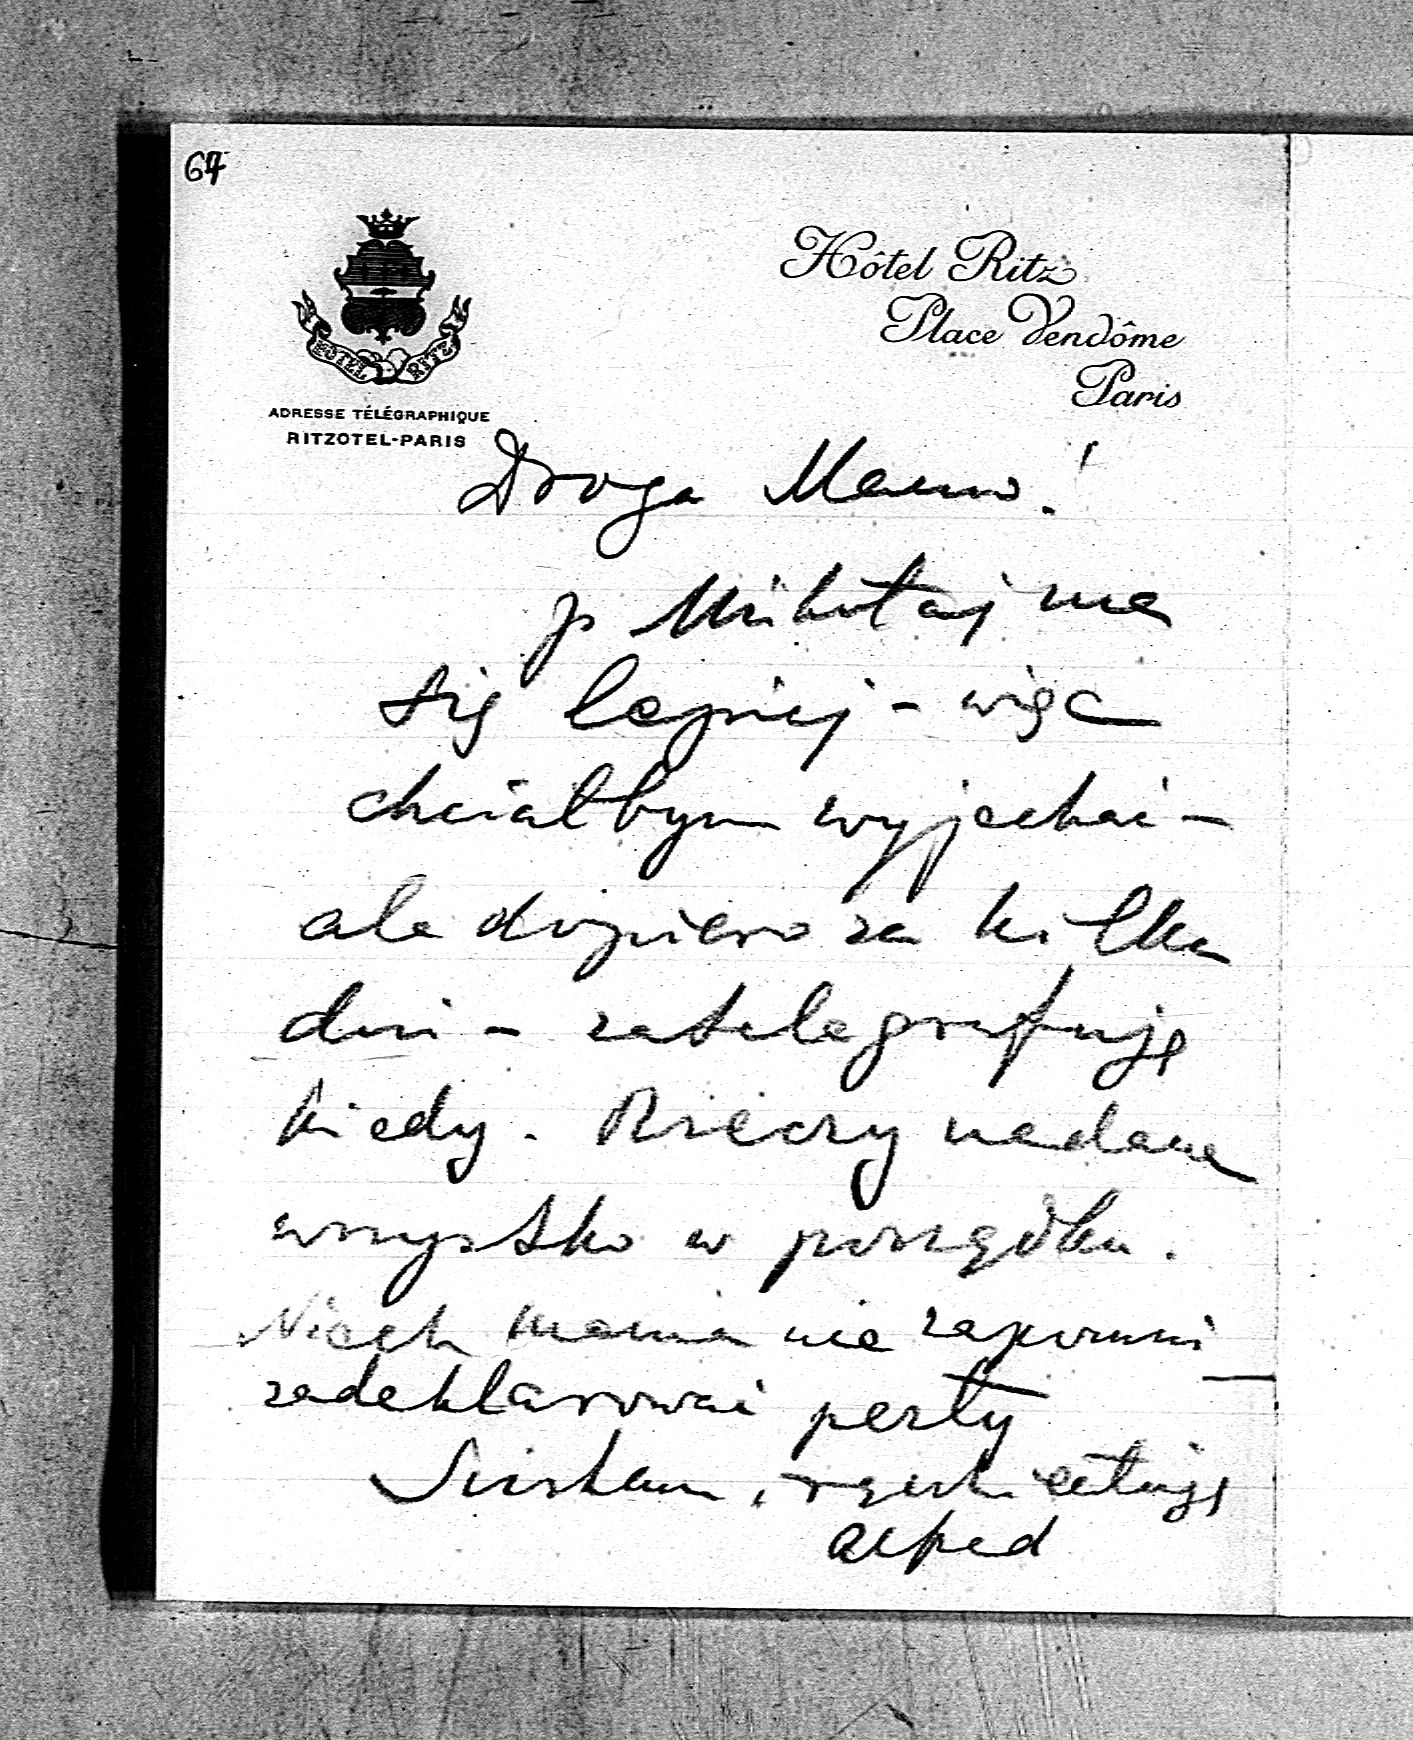 67
Hôtel Ritz
Place Vendôme
Paris
HOTEL RITZ
ADRESSE TÉLÉGRAPHIQUE
RITZOTEL-PARIS
Droga Mamo!
p Mikołaj ma
się lepiej - więc
chciałbym wyjechać -
ale dopiero za kilka
dni - zatelegrafuję
kiedy. Rzeczy nadane
wszystko w porządku.
Niech mama nie zapomni
zadeklarować perły
Ściskam, rączki całuję
Alfred